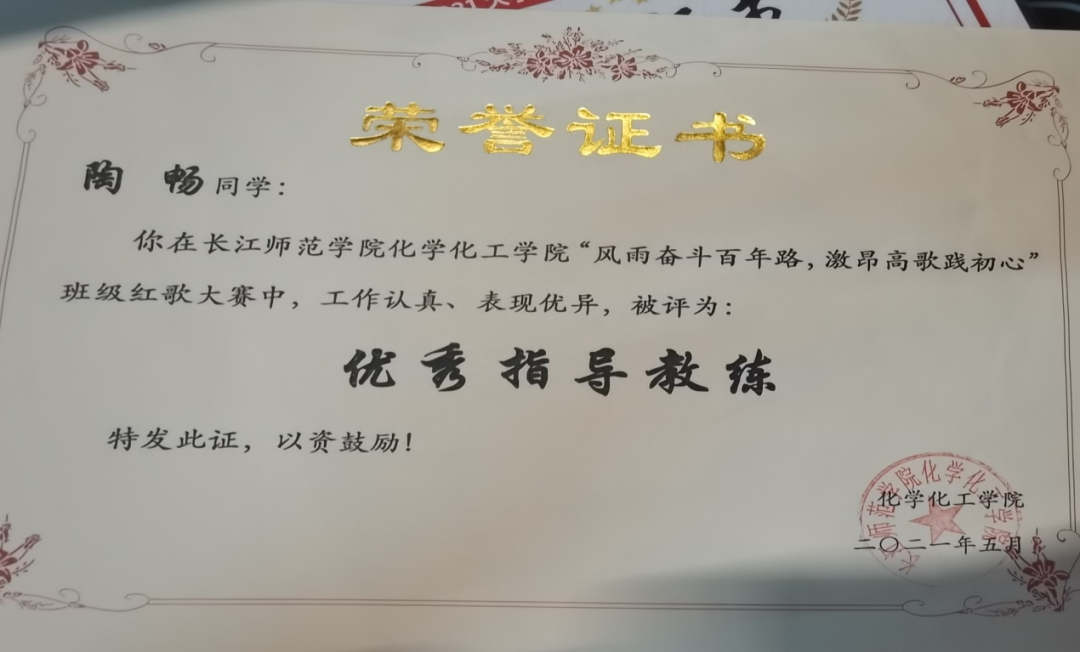 荣誉证书
陶 畅同学：
你在长江师范学院化学化工学院“风雨奋斗百年路，激昂高歌践初心”
班级红歌大赛中，工作认真、表现优异，被评为：
优秀指导教练
特发此证，以资鼓励！
长江师范学院化学化工学院
化学化工学院
二〇二一年五月